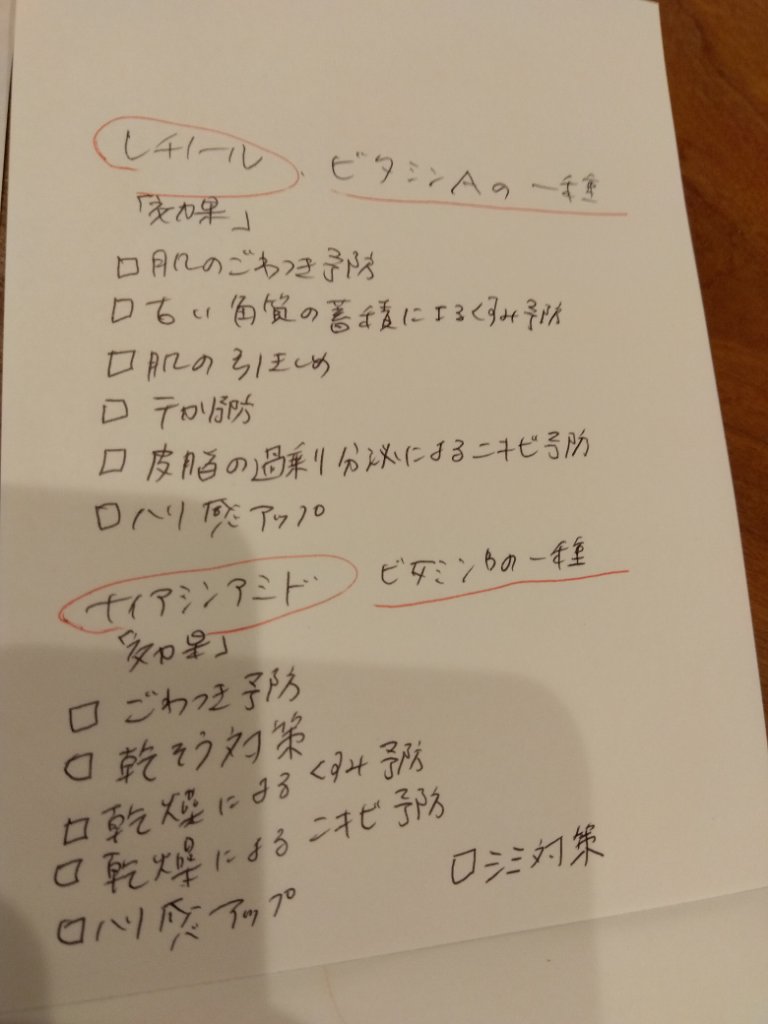 レチノール、ビタミンAの一種
「効果」
□ 肌のごわつき予防
□ 古い角質の蓄積によるくすみ予防
□ 肌の引きしめ
□ テカリ予防
□ 皮脂の過剰分泌によるニキビ予防
□ ハリ感アップ
ナイアシンアミド ビタミンBの一種
「効果」
□ ごわつき予防
□ 乾そう対策
□ 乾燥によるくすみ予防
□ 乾燥によるニキビ予防
□ ハリ感アップ
□ シミ対策